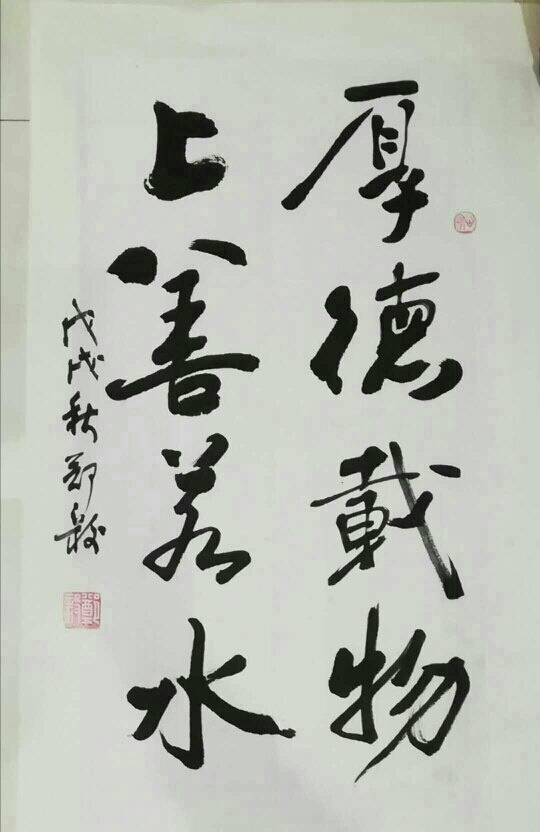 厚德載物
上善若水
戊戌秋郑毅